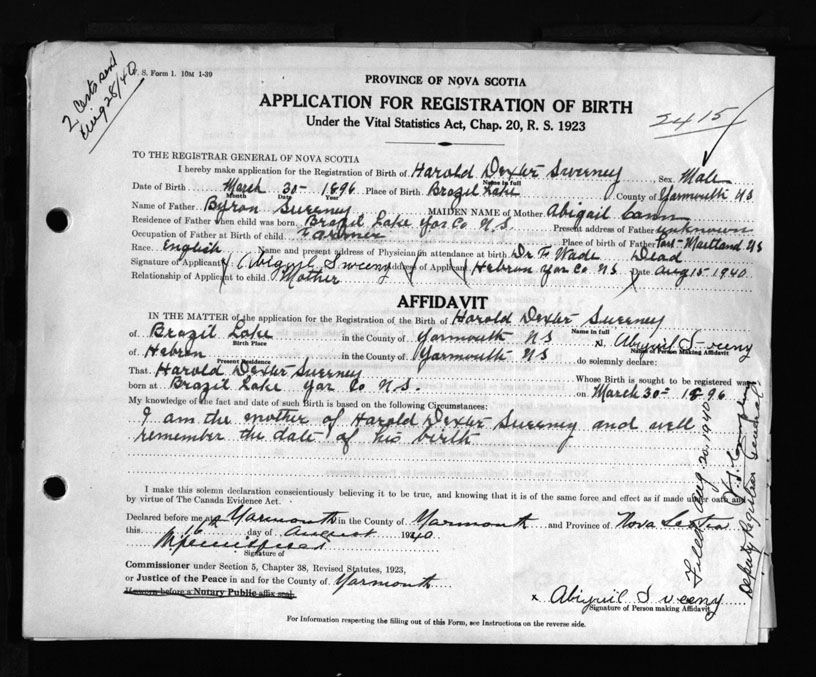 2 Certs send
Aug 28/40
V. S. Form 1. 10M 1-39
PROVINCE OF NOVA SCOTIA
APPLICATION FOR REGISTRATION OF BIRTH
Under the Vital Statistics Act, Chap. 20, R. S. 1923
2415
TO THE REGISTRAR GENERAL OF NOVA SCOTIA
I hereby make application for the Registration of Birth of Harold Dexter Sweeney Sex Male
Name in full
Date of Birth March 30 - 1896 Place of Birth Brazil Lake County of Yarmouth NS
Month Date Year
Name of Father Byron Sweeney MAIDEN NAME of Mother Abigail Cann
Residence of Father when child was born Brazil Lake Yar Co N.S. Present address of Father unknown
Occupation of Father at Birth of child Farmer Place of Birth of Father Port-Maitland NS
Race English Name and present address of Physician in attendance at birth Dr F. Wade Dead
Signature of Applicant Abiguil Sweeny Address of Applicant Hebron Yar Co. NS Date Aug 15-1940
Relationship of Applicant to child Mother
AFFIDAVIT
IN THE MATTER of the application for the Registration of the Birth of Harold Dexter Sweeney
Name in full
of Brazil Lake in the County of Yarmouth NS Abiguil Sweeny
Birth Place Name of Person Making Affidavit
of Hebron in the County of Yarmouth NS do solemnly declare:
Present Residence
That Harold Dexter Sweeney Whose Birth is sought to be registered was
born at Brazil Lake Yar Co N.S. on March 30 - 1896
My knowledge of the fact and date of such Birth is based on the following Circumstances:
I am the mother of Harold Dexter Sweeney and well
remember the date of his birth
I make this solemn declaration conscientiously believing it to be true, and knowing that it is of the same force and effect as if made under oath and
by virtue of The Canada Evidence Act.
Declared before me at Yarmouth in the County of Yarmouth and Province of Nova Scotia
this 16th day of August 1940
Signature of
Commissioner under Section 5, Chapter 38, Revised Statutes, 1923,
or Justice of the Peace in and for the County of Yarmouth
Honors before a Notary Public affix seal
x Abiguil Sweeny
Signature of Person making Affidavit
For Information respecting the filling out of this Form, see Instructions on the reverse side.
Filed Aug 20, 1940
Deputy Registrar General